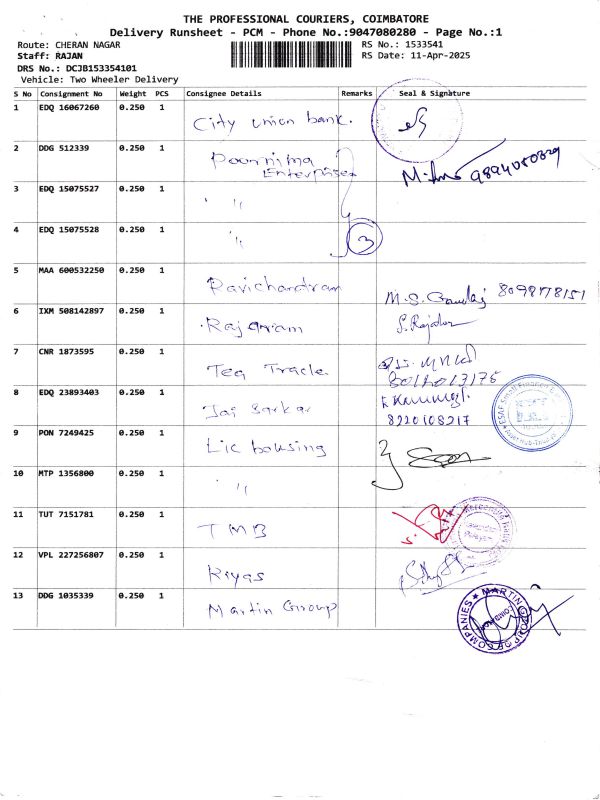 THE PROFESSIONAL COURIERS, COIMBATORE
Delivery Runsheet - PCM - Phone No.:9047080280 - Page No.:1
Route: CHERAN NAGAR
RS No.: 1533541
Staff: RAJAN
RS Date: 11-Apr-2025
DRS No.: DCJB153354101
Vehicle: Two Wheeler Delivery
S No Consignment No Weight PCS Consignee Details Remarks Seal & Signature
1 EDQ 16067260 0.250 1 City union bank.
2 DDG 512339 0.250 1 Poornima Enterprises
3 EDQ 15075527 0.250 1 〃
4 EDQ 15075528 0.250 1 〃 3
5 MAA 600532250 0.250 1 Ravichandran 8098778151
6 IXM 508142897 0.250 1 Rajaram
7 CNR 1873595 0.250 1 Tea Trade
8 EDQ 23893403 0.250 1 Jai Sarkar 8220108217
9 PON 7249425 0.250 1 Lic housing
10 MTP 1356800 0.250 1 〃
11 TUT 7151781 0.250 1 TMB
12 VPL 227256807 0.250 1 Riyas
13 DDG 1035339 0.250 1 Martin Group
MARTIN GROUP OF COMPANIES